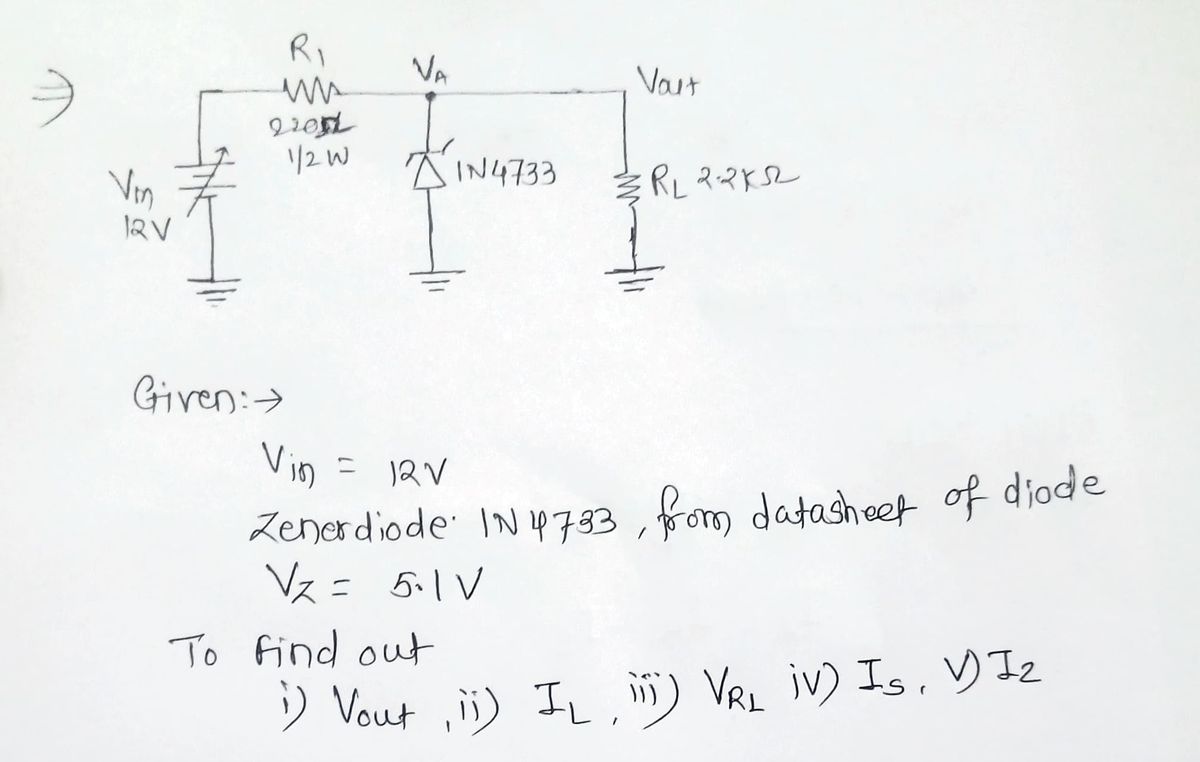 ⇒
R1
220Ω
1/2 W
VA
Vout
Vin
12V
IN4733
RL 2.2KΩ
Given:→
Vin = 12V
Zenerdiode IN4733, from datasheet of diode
VZ = 5.1V
To find out
i) Vout, ii) IL, iii) VRL iv) Is, V) Iz